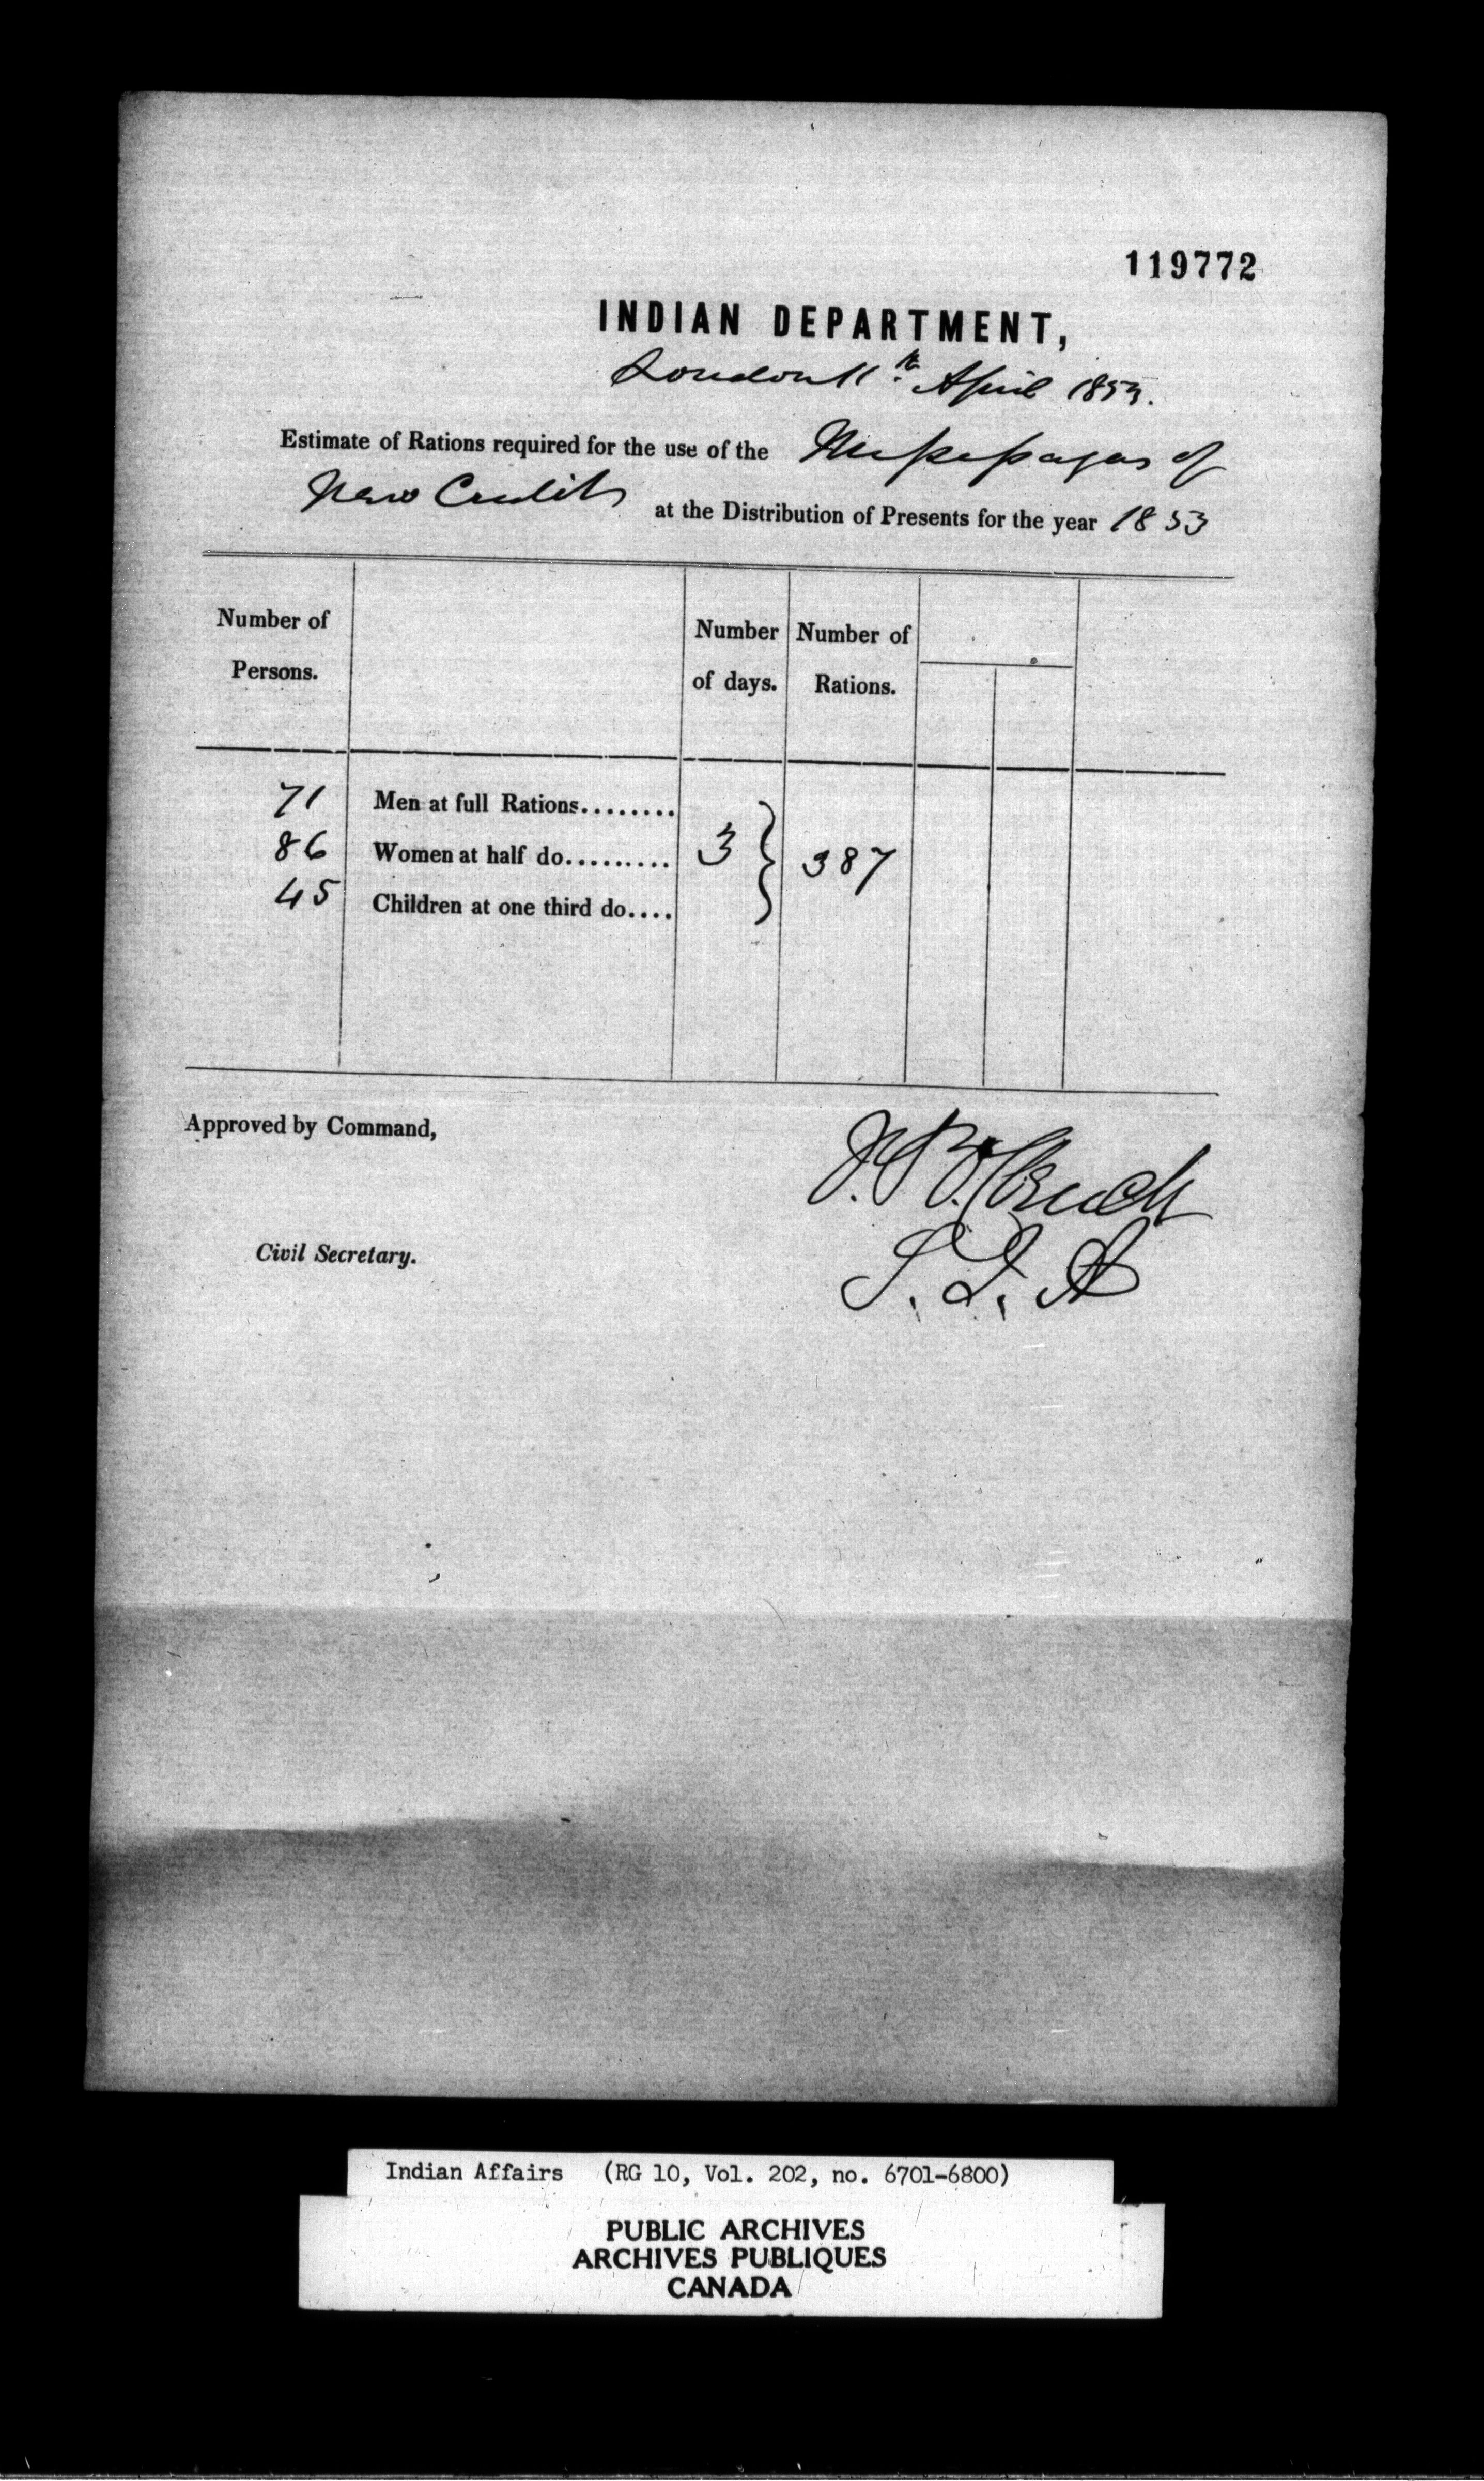 119772
INDIAN DEPARTMENT,
London 11th April 1853.
Estimate of Rations required for the use of the Missisagas of
New Credit at the Distribution of Presents for the year 1853
Number of Persons. Number of days. Number of Rations.
71 Men at full Rations........
86 Women at half do......... 3 } 387
45 Children at one third do....
Approved by Command,
J. B. Clench
Civil Secretary.
S. I. A
Indian Affairs (RG 10, Vol. 202, no. 6701-6800)
PUBLIC ARCHIVES
ARCHIVES PUBLIQUES
CANADA